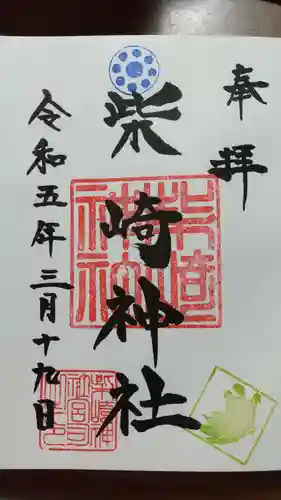 奉拝
柴崎神社
令和五年三月十九日
柴崎神社